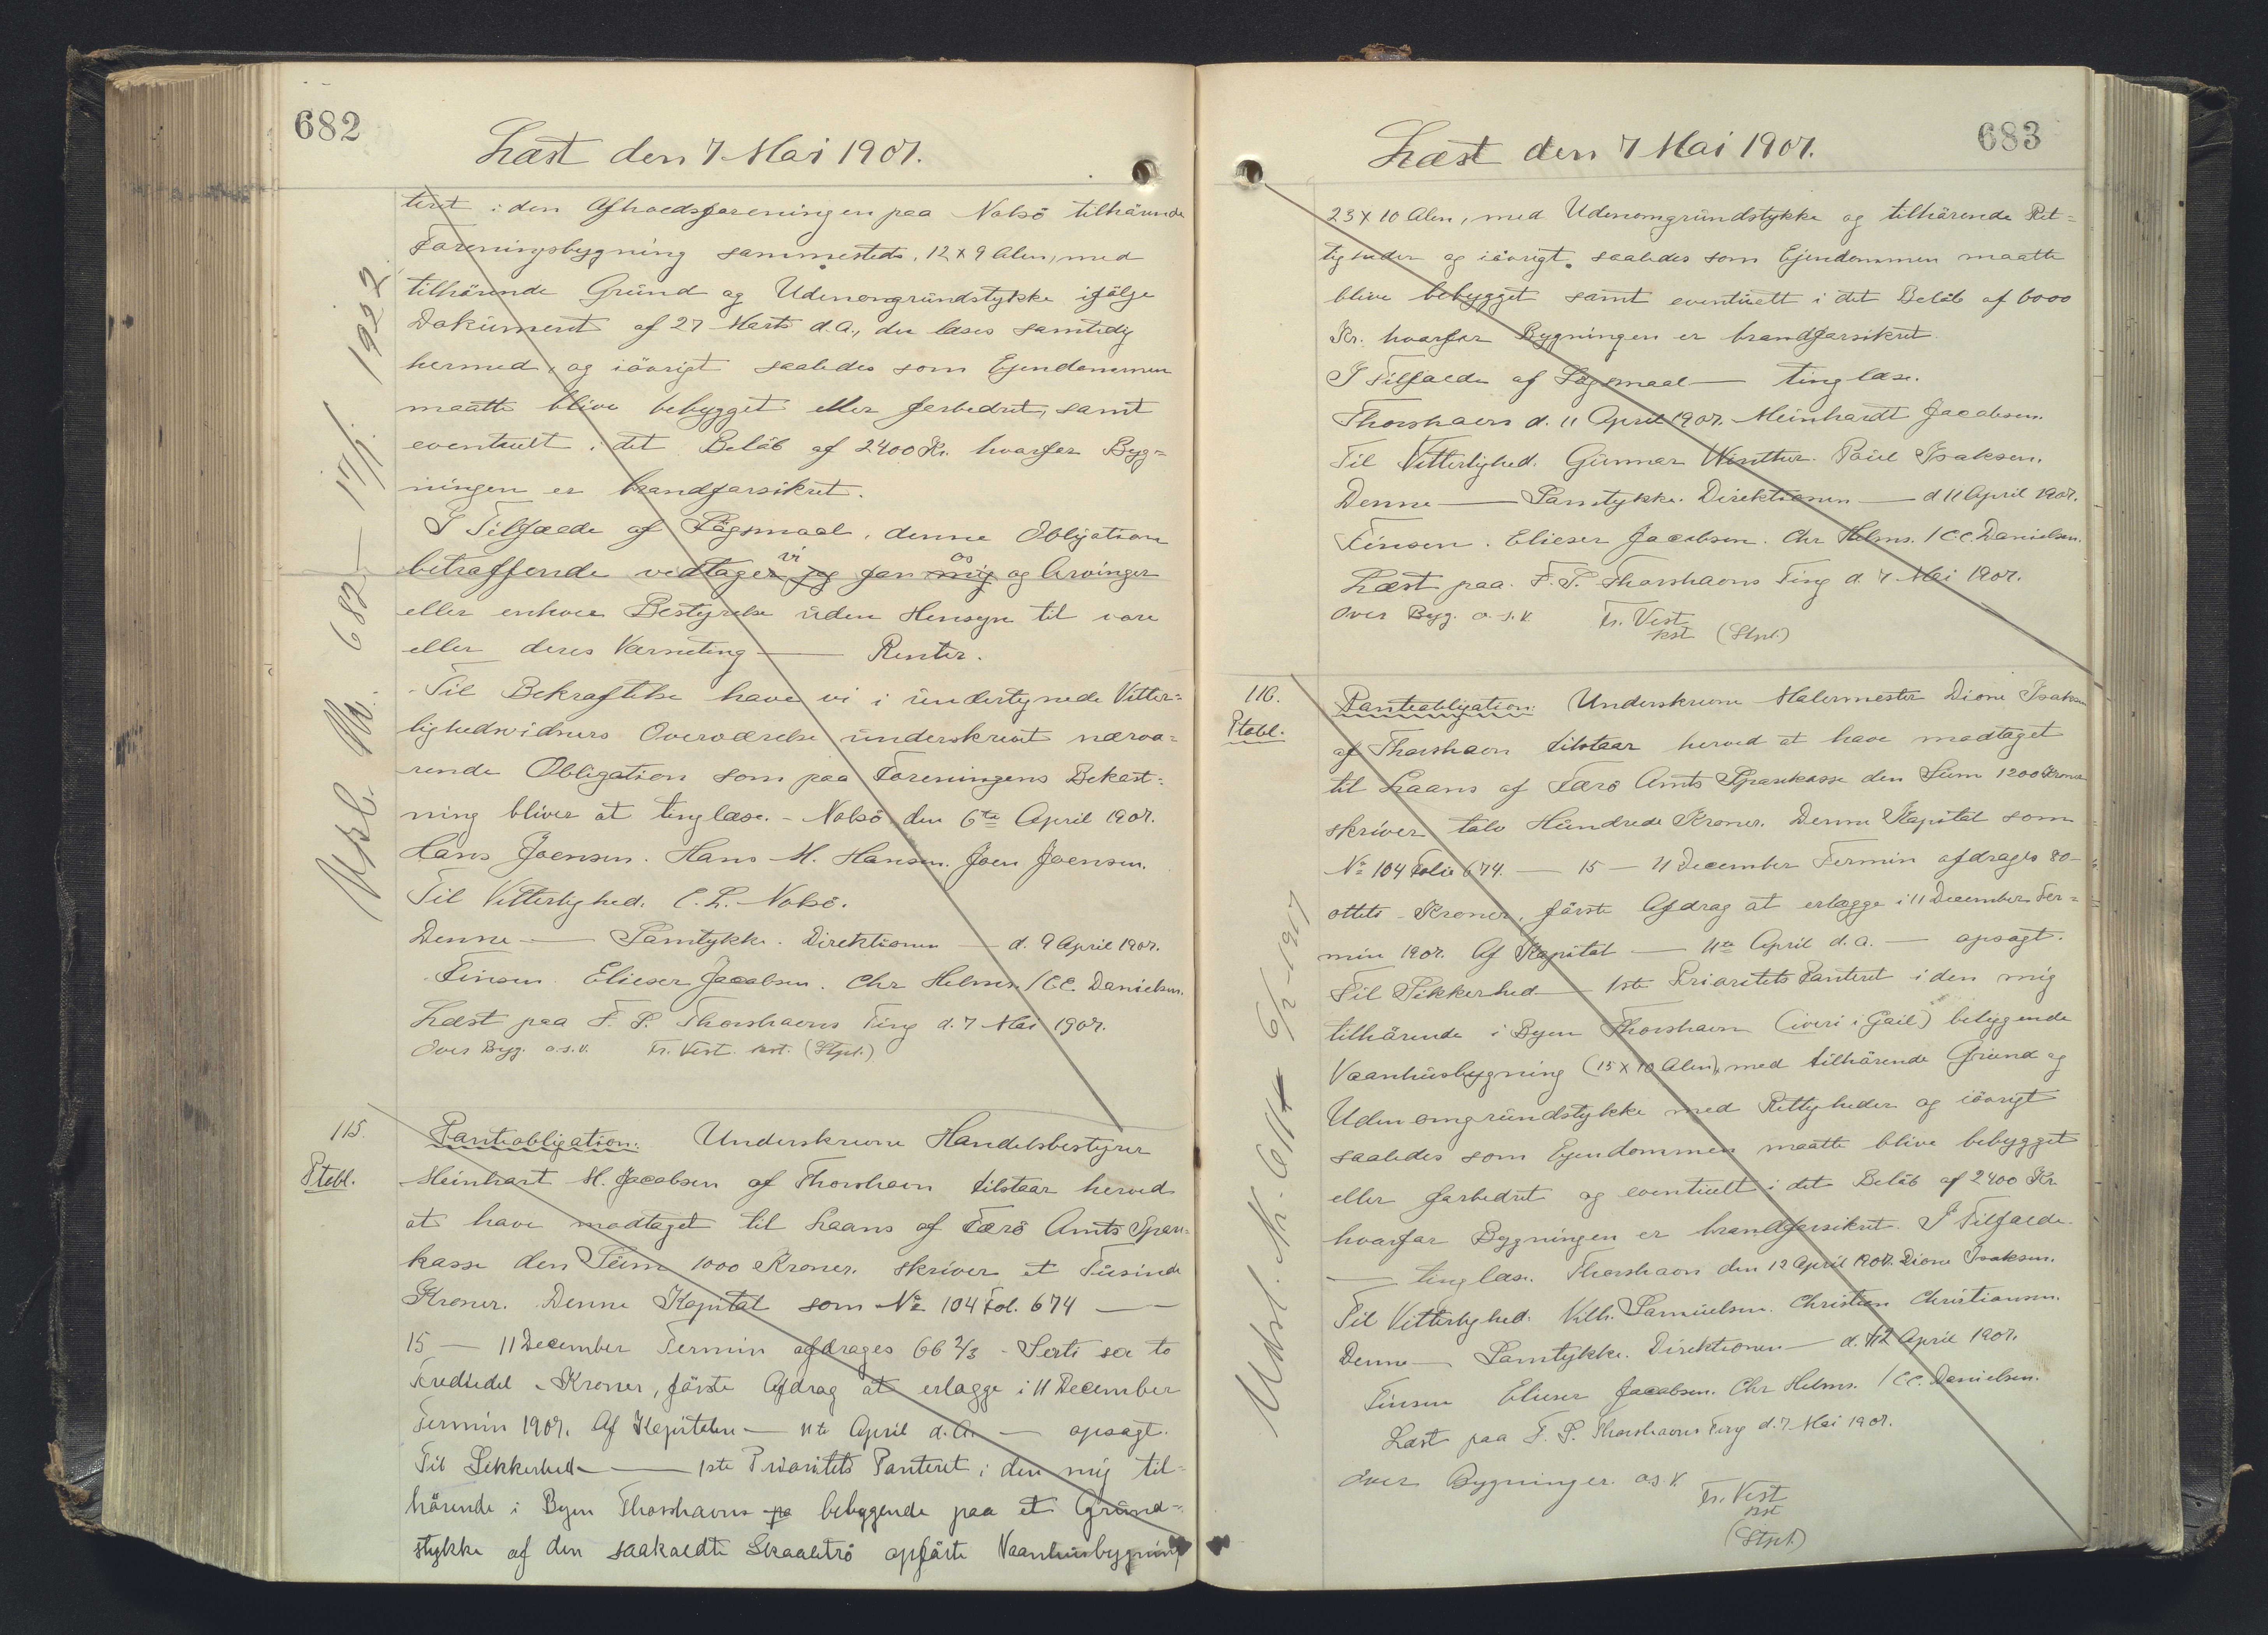 682
Læst den 7 Mai 1907.
teret i den Afhoedsforeningen paa Nolsö tilhörende
Foreningsbygning sammesteds, 12 x 9 Alen, med
tilhörende Grund og Udenomgrundstykke ifölge
Dokument af 27 Marts d.A., der læses samtidig
hermed, og iövrigt saaledes som Ejendommen
maatte blive bebygget eller forbedret, samt
eventuelt i det Belöb af 2400 Kr. hvorfor Byg=
ningen er brandforsikret.
I Tilfælde af Sögsmaal, denne Obligation
betræffende vedtager jeg vi for mig os og Arvinger
eller enhver Bestyrelse uden Hensyn til vore
eller deres Værneting — Renter.
Til Bekræftelse have vi i undertegnede Vitter=
lighedsvidners Overværelse underskrevet nærvæ=
rende Obligation som paa Foreningens Bekost=
ning bliver at tinglæse. - Nolsö den 6te April 1907.
Hans Joensen. Hans M. Hansen. Joen Joensen.
Til Vitterlighed. C. L. Nolsö.
Denne — Samtykke. Direktionen — d. 9 April 1907.
Finsen. Elieser Jacobsen. Chr Helms. / C.C. Danielsen.
Læst paa F. S. Thorshavns Ting d. 7 Mai 1907.
Over Byg. o.s.v. Fr. Vest. kst. (Stpl.)
Udsl. Nr. 682 — 17/1. 1922.
115.
Ptobl.
Panteobligation: Underskrevne Handelsbestyrer
Meinhart M. Jacobsen af Thorshavn tilstaar herved
at have modtaget til Laans af Færö Amts Spare=
kasse den Sum 1000 Kroner. skriver et Tusinde
Kroner. Denne Kapital som No 104 Fol. 674 —
15 — 11 December Termin afdrages 66 2/3 - Serti sex to
Trediedel - Kroner, förste Afdrag at erlægge i 11 December
Termin 1907. Af Kapitalen — 11te April d.A. — opsagt.
Til Sikkerhed — 1ste Prioritets Panteret i den mig til=
hörende i Byen Thorshavns pa beliggende paa et Grund=
stykke af den saakaldte Skaaletrö opförte Vaanhusbygning
683
Læst den 7 Mai 1907.
23 x 10 Alen, med Udenomgrundstykke og tilhörende Ret=
tigheder og iövrigt saaledes som Ejendommen maatte
blive bebygget samt eventuelt i det Belöb af 6000
Kr. hvorfor Bygningen er brandforsikret.
I Tilfælde af Sögsmaal — tinglæse.
Thorshavn d. 11 April 1907. Meinhardt Jacobsen.
Til Vitterlighed. Gunnar Winther. Poul Isaksen.
Denne — Samtykke. Direktionen — d 11 April 1907.
Finsen. Elieser Jacobsen. Chr Helms. / C.C. Danielsen.
Læst paa F. S. Thorshavns Ting d. 7 Mai 1907.
Over Byg. o.s.v. Fr. Vest
kst (Stpl.)
116.
Ptobl.
Panteobligation: Underskrevne Malermester Dione Isaksen
af Thorshavn tilstaar herved at have modtaget
til Laans af Færö Amts Sparekasse den Sum 1200 Kroner
skriver tolv Hundrede Kroner. Denne Kapital som
No 104 Folio 674. — 15 — 11 December Termin afdrages 80 -
otteti - Kroner, förste Afdrag at erlægge i 11 December Ter=
min 1907. Af Kapital — 11te April d.a. — opsagt.
Til Sikkerhed — 1ste Prioritets Panteret i den mig
tilhörende i Byen Thorshavn (iveri i Gail) beliggende
Vaanhusbygning (15 x 10 Alen), med tilhörende Grund og
Udenomgrundstykke med Rettigheder og iövrigt
saaledes som Ejendommen maatte blive bebygget
eller forbedret og eventuelt i det Belöb af 2400 Kr
hvorfor Bygningen er brandforsikret. I Tilfælde
— tinglæse. Thorshavn den 12 April 1907. Dione Isaksen.
Til Vitterlighed: Vilh. Samuelsen. Christian Christiansen.
Denne — Samtykke. Direktionen — d. 12 April 1907.
Finsen Elieser Jacobsen. Chr Helms. / C.C. Danielsen.
Læst paa F. S. Thorshavns Ting d. 7 Mai 1907.
over Bygninger o.s.v. Fr. Vest
kst
(Stpl.)
Udsl. Nr. 6/2-1917